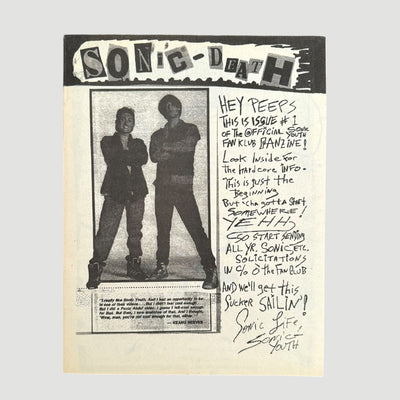 SONiC-DEATH
HEY PEEPS
THIS IS ISSUE #1
OF THE OFFICIAL SONIC YOUTH
FAN KLUB FANZINE!
Look Inside For
the Hardcore INFO.
This is Just the
Beginning
But 'cha gotta start
SOMEWHERE!
YEHH,
SO START SENDING
ALL YR. SONIC, ETC.
SOLICITATIONS
IN C/O the FAN CLUB
AND We'll get this
SUCKER SAILIN'!
Sonic Life,
SONIC-
YOUTH
"I really like Sonic Youth. And I had an opportunity to be
in one of their videos . . . But I didn't feel cool enough.
But I did a Paula Abdul video. I guess I felt cool enough
for that. But then, I saw
And I thought,
'Wow, man, you're not cool enough for that, either.'"
— KEANU REEVES